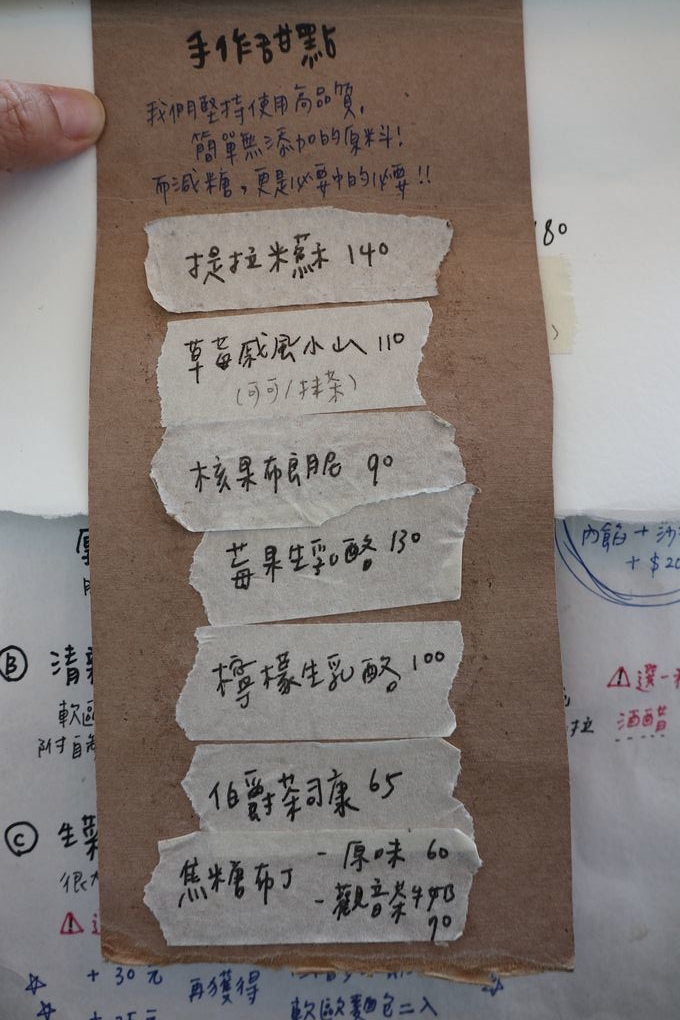 手作甜點
我們堅持使用高品質,
簡單無添加的原料!
而減糖,更是必要中的必要!!
提拉米蘇 140
草莓戚風小山 110
(可可/抹茶)
核果布朗尼 90
莓果生乳酪 130
檸檬生乳酪 100
伯爵茶司康 65
焦糖布丁 - 原味 60
- 觀音茶牛奶
70
80
)
內餡+沙
+$20
Ⓑ 清
軟歐
附自
⚠選一
拉 酒醋
Ⓒ 生菜
很大
⚠
+30元
再獲得
軟歐麵包二入